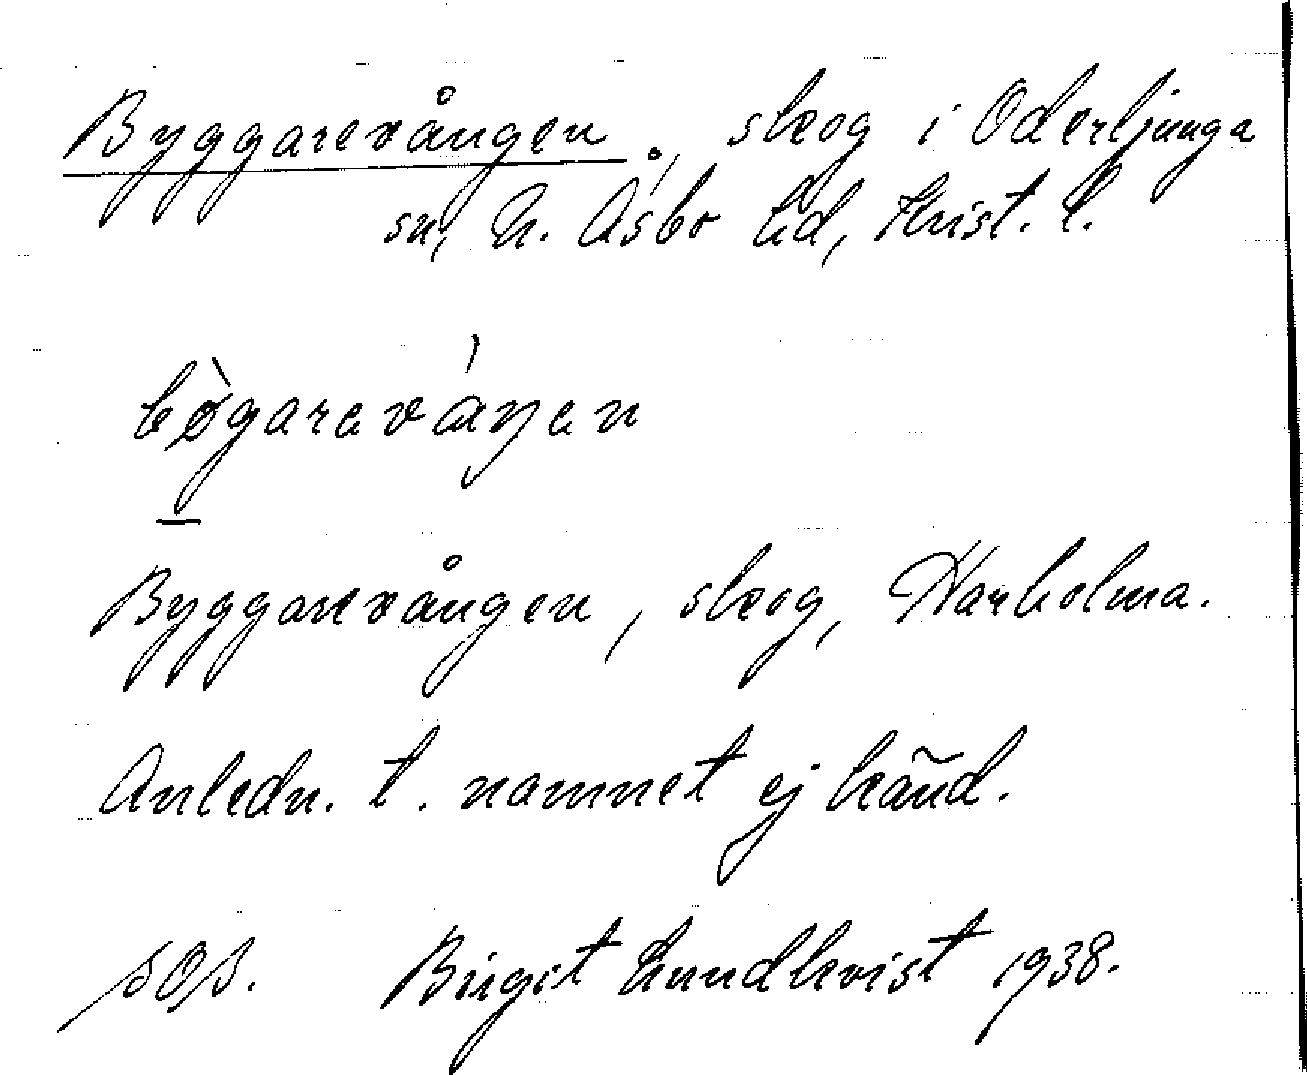 Byggarevången, skog i Oderljunga
sn, N. Åsbo hd, Krist. l.
bø̀garaváŋen
Byggarevången, skog, Harholma.
Anledn. t. namnet ej känd.
Birgit Lundkvist 1938.